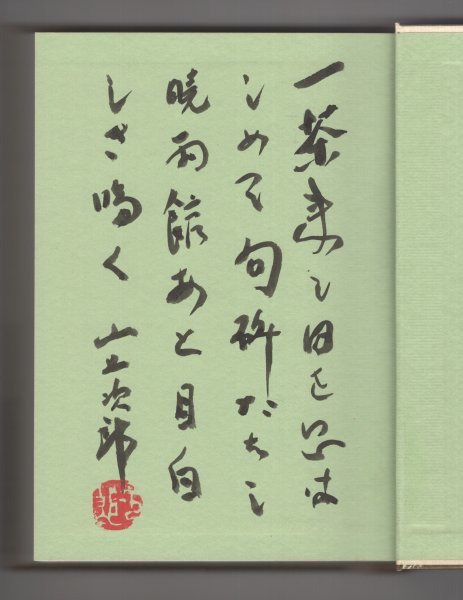 一茶来し日を思は
しめて句碑たちし
暁雨館あと目白
しき鳴く 山上次郎